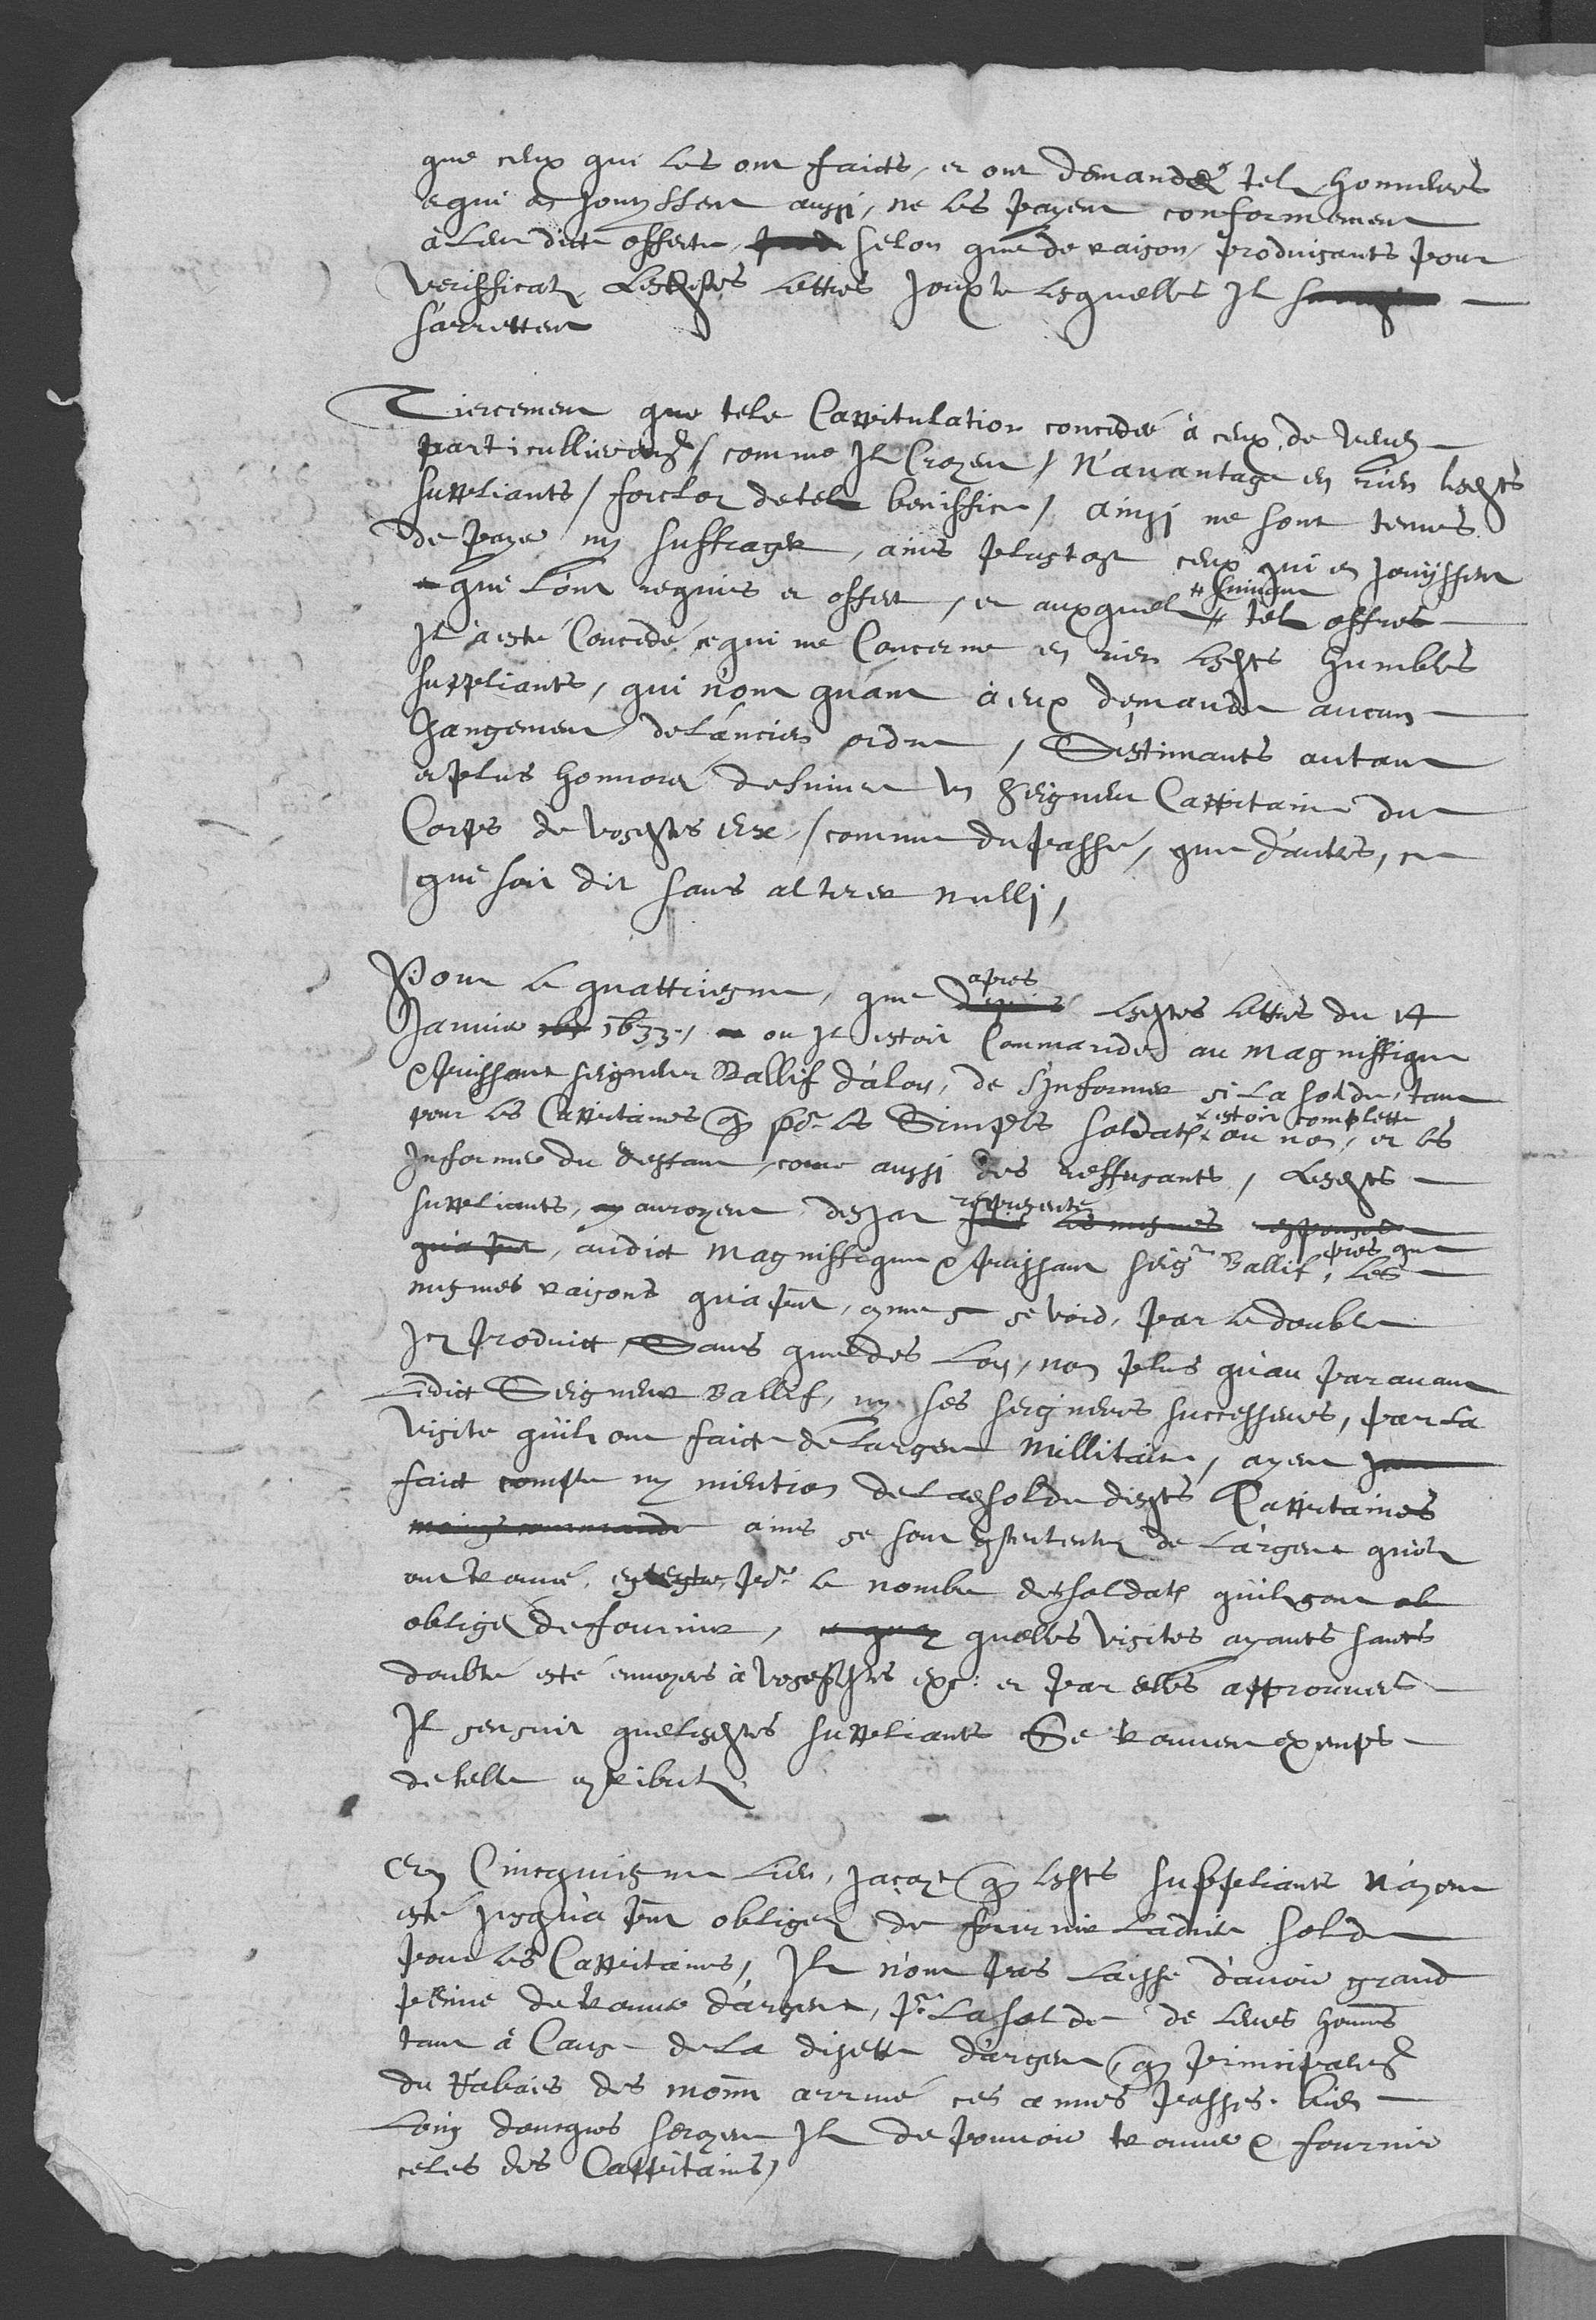 que ceux qui les ont faicts, et ont demandé tels honneurs
et qui en jouyssent aussi, ne les payent conformement
à leur ditte offerte, selon que de raison, produisants pour
veriffica͠on lesdites lettres jouxte lesquelles Il
s'arrettent
Tiercement que tele Cappitulation concedée à ceux de
particullierem͠t / comme Ilz Croyent / N'avantage en rien lesdts
suppliants / forclos de telz beniffice / ainsi ne sont tenus
de paye ny suffrager, ains plustost ceux qui en jouyssent
et qui l'ont requis et offert, et auxquelz # suivant # telz offres
Il a esté Concedé, ce qui ne Concerne en rien lesdts humbles
suppliants, qui n'ont quant à eux demandé aucun
changement de l'ancien ordre, S'estimants autant
et plus honnoré de suivre un Seigneur Cappitaine du
Corps de vosdites Exc / comme du passé, que d'autres, ce
que soit dit sans alterer nulli,
Pour le quattriesme, que après lesdites lettres du 14
Janvier 1633, ou Il estoit Commandé au magniffique
& puissant seigneur Ballif d'alors, de s'Informer si la solde, tant
pour les Cappitaines que pr les Simples soldatz x estoit complette ou non, et les
Informer du deffaut, come aussi des reffusants, lesdts
suppliants, auroyent desjat representé
audict magniffique & puissant seigr Ballif, les
mesmes raisons qu'à pnt, comme se void, par le double
Icy produict, Sans que des lors, non plus qu'au paravant
ledict Seigneur Ballif, ny ses seigneurs successeurs, par la
visite qu'ilz ont faict de l'argent Millitaire, ayent
faict compte ny mention de la solde desdts Cappitaines
ains se sont contentez de l'argent qu'ilz
ont trouvé, pr le nombre de soldatz qu'ilz sont
obligé de fournir, quelles visites ayants sants
doubte esté envoyées à vosdites exc: et par elles approuvées
Il sensuit que lesdts suppliants Se trouvent exempts
de telle contributõn.
En Cincquiesme lieu, jaçoyt que lesdts suppliants n'ayent
esté jusqu'à pnt obligez de fournir ladite solde
pour les Cappitaines, Ilz n'ont pas laissé d'avoir grand
peine de trouver d'argent, pr la solde de leurs hommes
tant à Cause de la disette d'argent, que principalem͠t
du rabais des monn arrivé ces annees passés. bien
loing doncques seroyent Ilz de pouvoir trouver & fournir
celes des Cappitaines,